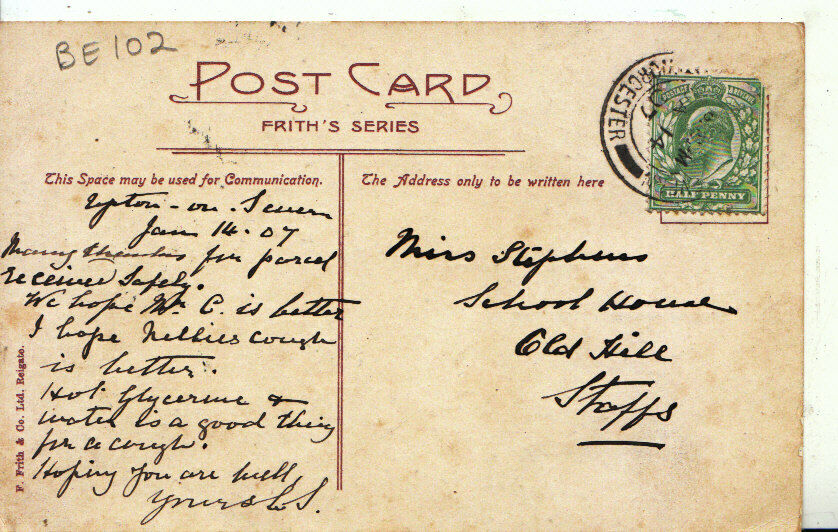 BE102
POST CARD
FRITH'S SERIES
This Space may be used for Communication.
The Address only to be written here
WORCESTER
JA 14
POSTAGE & REVENUE
HALF PENNY
Upton-on-Severn
Jan 14.07
Many thanks for parcel
received safely.
We hope Mr C. is better
I hope Nellies cough
is better.
Hot Glycerine &
water is a good thing
for a cough.
Hoping you are well
yours
Miss Stephens
School House
Old Hill
Staffs
F. Frith & Co. Ltd. Reigate.